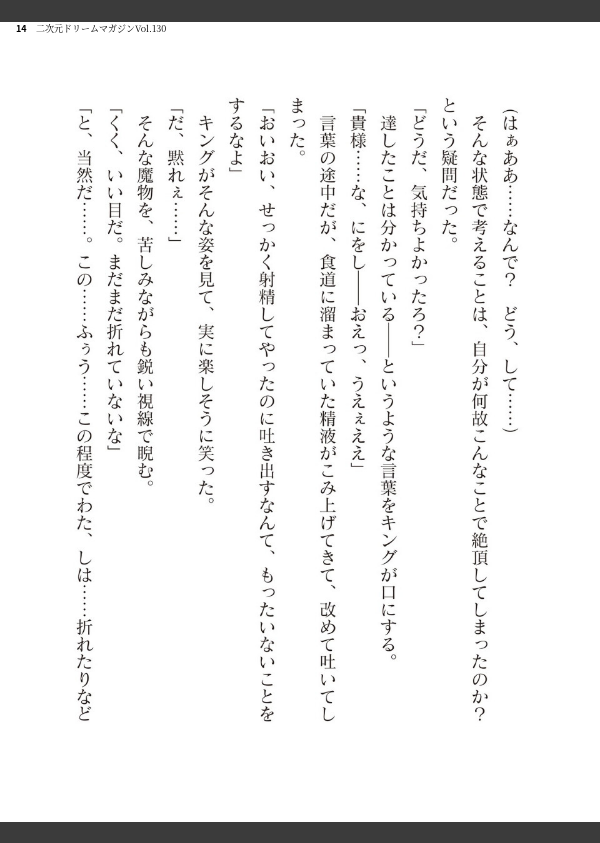 14 二次元ドリームマガジンVol.130
(はぁああ……なんで？　どう、して……)
そんな状態で考えることは、自分が何故こんなことで絶頂してしまったのか？
という疑問だった。
「どうだ、気持ちよかったろ？」
達したことは分かっている――というような言葉をキングが口にする。
「貴様……な、にをし――おえっ、うえぇええ」
言葉の途中だが、食道に溜まっていた精液がこみ上げてきて、改めて吐いてし
まった。
「おいおい、せっかく射精してやったのに吐き出すなんて、もったいないことを
するなよ」
キングがそんな姿を見て、実に楽しそうに笑った。
「だ、黙れぇ……」
そんな魔物を、苦しみながらも鋭い視線で睨む。
「くく、いい目だ。まだまだ折れていないな」
「と、当然だ……。この……ふぅう……この程度でわた、しは……折れたりなど